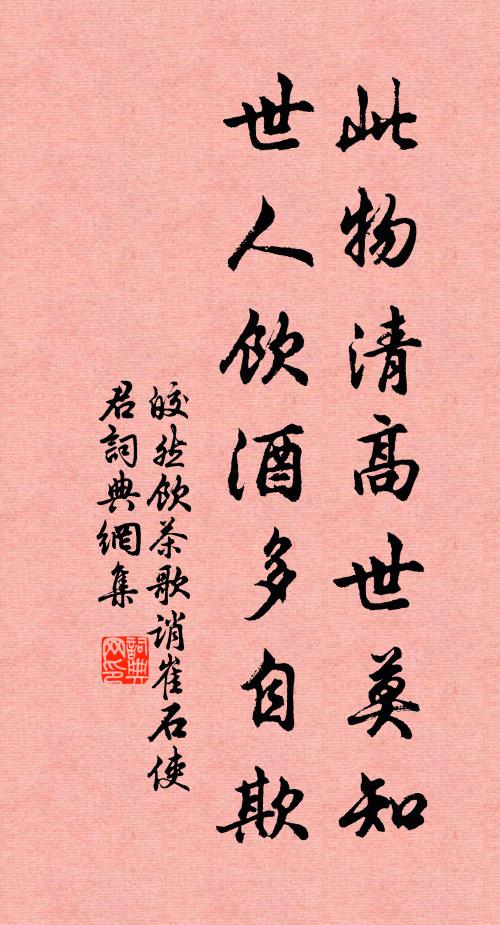 此物清高世莫知
世人飲酒多自欺
皎然飲茶歌誚崔石使
君詞典網集
詞典
网印